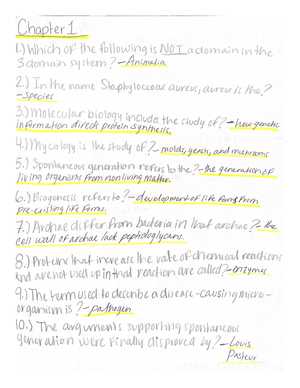 Chapter 1
1.) Which of the following is NOT a domain in the
3 domain system? - Animalia
2.) In the name Staphyloccous aureus, aureus is the?
- Species
3.) Molecular biology include the study of? - how genetic
information directs protein synthesis.
4.) Mycology is the study of? - molds, yeast, and mushrooms
5.) Spontaneous generation refers to the? - the generation of
living organisms from nonliving matter.
6.) Biogenesis refers to? - development of life forms from
pre-existing life forms.
7.) Archae differ from bacteria in that archae? - the
cell wall of archae lack peptidoglycans.
8.) Proteins that increase the rate of chemical reactions
and are not used up in that reaction are called? - enzymes
9.) The term used to describe a disease-causing micro-
organism is? - pathogen
10.) The arguments supporting spontaneous
generation were finally disproved by? - Louis
Pasteur